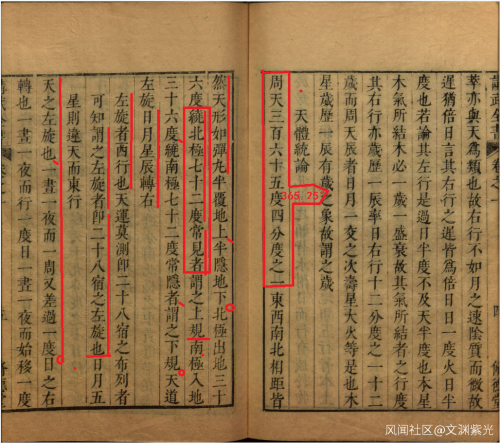 亦與天爲類也故右行不如月之速陰質而微故
遲猶倍日言其右行之遲皆爲倍日日一度火日半
度也若論其左行是過日半度不及天半度也木星
木氣所結木必一歲一盛衰故其氣所結者之行度
其右行亦歲歷一辰率日右行十二分度之一十二
歲而周天辰者日月一交之次壽星大火等是也木
星歲歷一辰有歲之象故謂之歲
天體統論
周天三百六十五度四分度之一東西南北相距皆
365.25
然天形如彈丸半覆地上半隱地下北極出地三十
六度統北極七十二度常見者謂之上規南極入地
三十六度統南極七十二度常隱者謂之下規天道
左旋日月星辰轉右
左旋者西行也天運莫測卽二十八宿之布列者
可知謂之左旋者卽二十八宿之左旋也日月五
星則違天而東行
天之左旋也一晝一夜而一周又差過一度日之右
轉也一晝一夜而行一度日一晝一夜而始移一度
风闻社区@文渊紫光